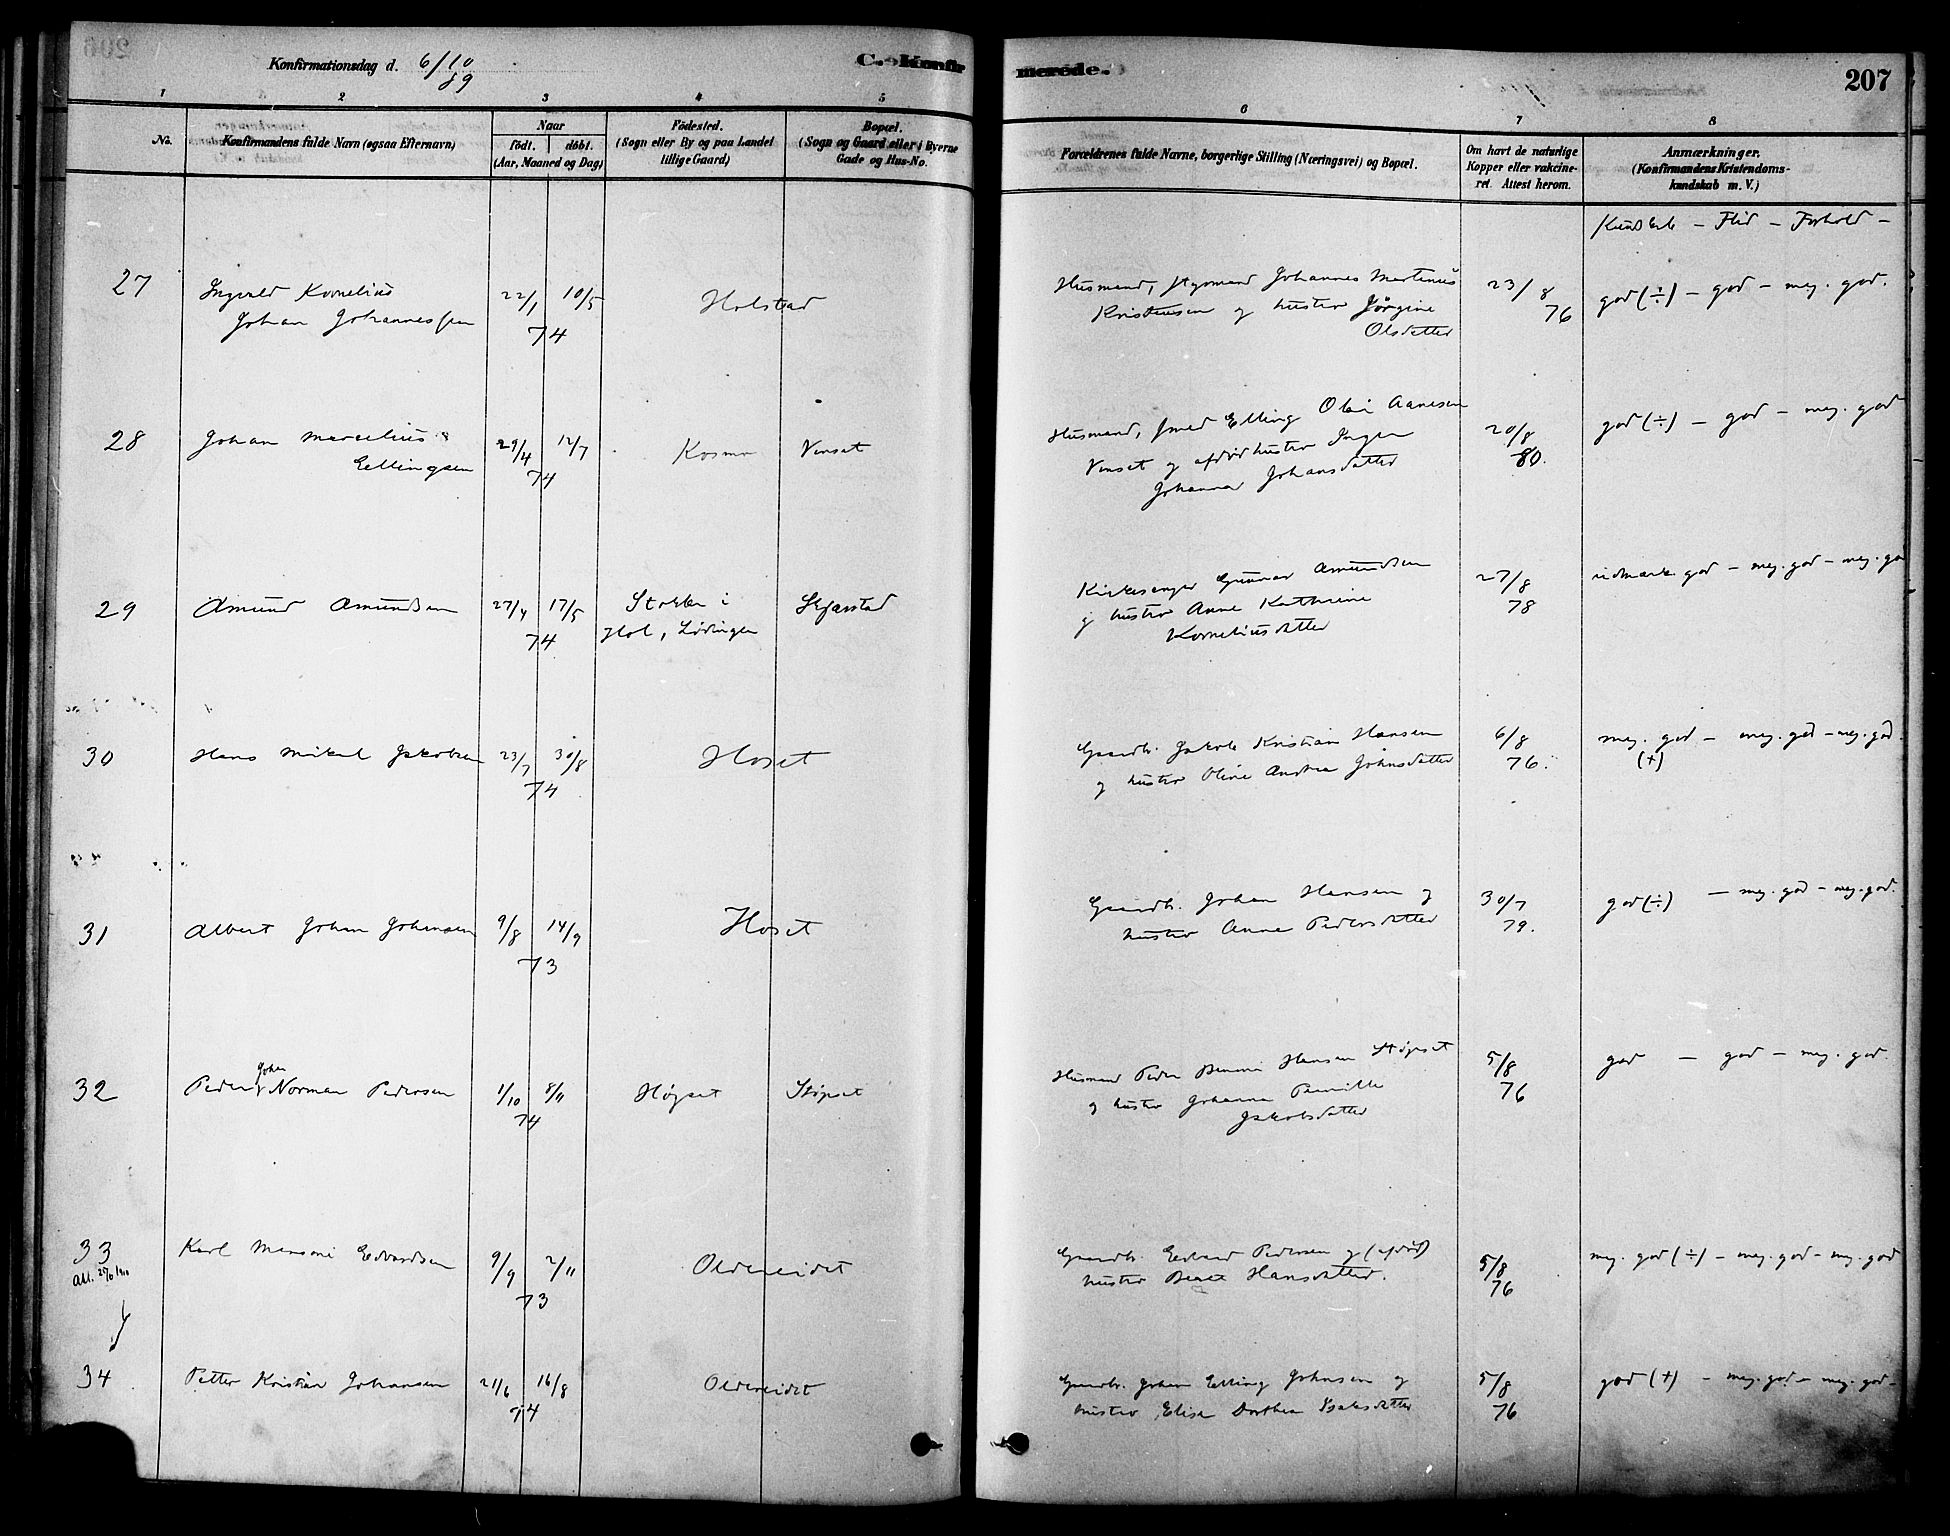 Konfirmationsdag d. 6/10 89
C. Konfirmerede.
207
1 2 3 4 5 6 7 8
No.
Konfirmandens fulde Navn (ogsaa Efternavn)
Naar
født. døbt.
(Aar, Maaned og Dag)
Fødested.
(Sogn eller By og paa Landet
tillige Gaard)
Bopæl.
(Sogn og Gaard eller i Byerne
Gade og Hus-No.
Forældrenes fulde Navne, borgerlige Stilling (Næringsvei) og Bopæl.
Om havt de naturlige
Kopper eller vakcine-
ret. Attest herom.
Anmærkninger.
(Konfirmandens Kristendoms-
kundskab m. V.)
Kundskab – Flid – Forhold –
27
Ingvald Kornelius
Johan Johannessen
22/1 10/5
74
Holstad
Husmand, Johannes Martinus
Kristensen og hustru Jörgine
Olsdatter
23/8
76
god (÷) – god – meg. god.
28
Johan Marcelius
Ellingsen
29/4 12/7
74
Kosmo
Venset
Husmand, Smed Elling Olai Aanesen
Venset og afdød hustru Inger
Johanna Johansdatter
20/8
80.
god (÷) – god – meg. god
29
Amund Amundsen
27/4 17/5
74
Stokke i
Hol, Lødingen
Skjærstad
Kirkesanger Gunnar Amundsen
og hustru Anne Kathrine
Korneliusdatter
27/8
78
udmærk. god – meg. god – meg. go
30
Hans Mikal Jakobsen
23/7 30/8
74
Hoset
Gaardb. Jakob Kristian Hansen
og hustru Oline Andrea Johnsdatter
6/8
76.
meg. god – meg. god – meg. god.
(+)
31
Albert Johan Johansen
9/8 14/9
73
Hoset
Gaardb. Johan Hansen og
hustru Anna Pedersdatter
30/7
79.
god (÷) – meg. god – meg. god.
32
Johan
Peder Norman Pedersen
1/10 8/11
74
Høgset
Støpset
Husmand Peder Hansen Støpset
og hustru Johanna Pernille
Jakobsdatter
5/8
76
god – god – meg. god.
33
Karl Mansoni Edvardsen
9/9 2/11
73
Oldereidet
Gaardb. Edvard Pedersen og (afdød)
hustru Hansdatter.
5/8
76
meg. god (÷) – meg. god – meg. god
34
Petter Kristian Johansen
21/6 16/8
74
Oldereidet
Gaardb. Johan Elling Johnsen og
hustru Elisa Dorthea Isaksdatter
5/8
76
god (+) – meg. god – meg. god –